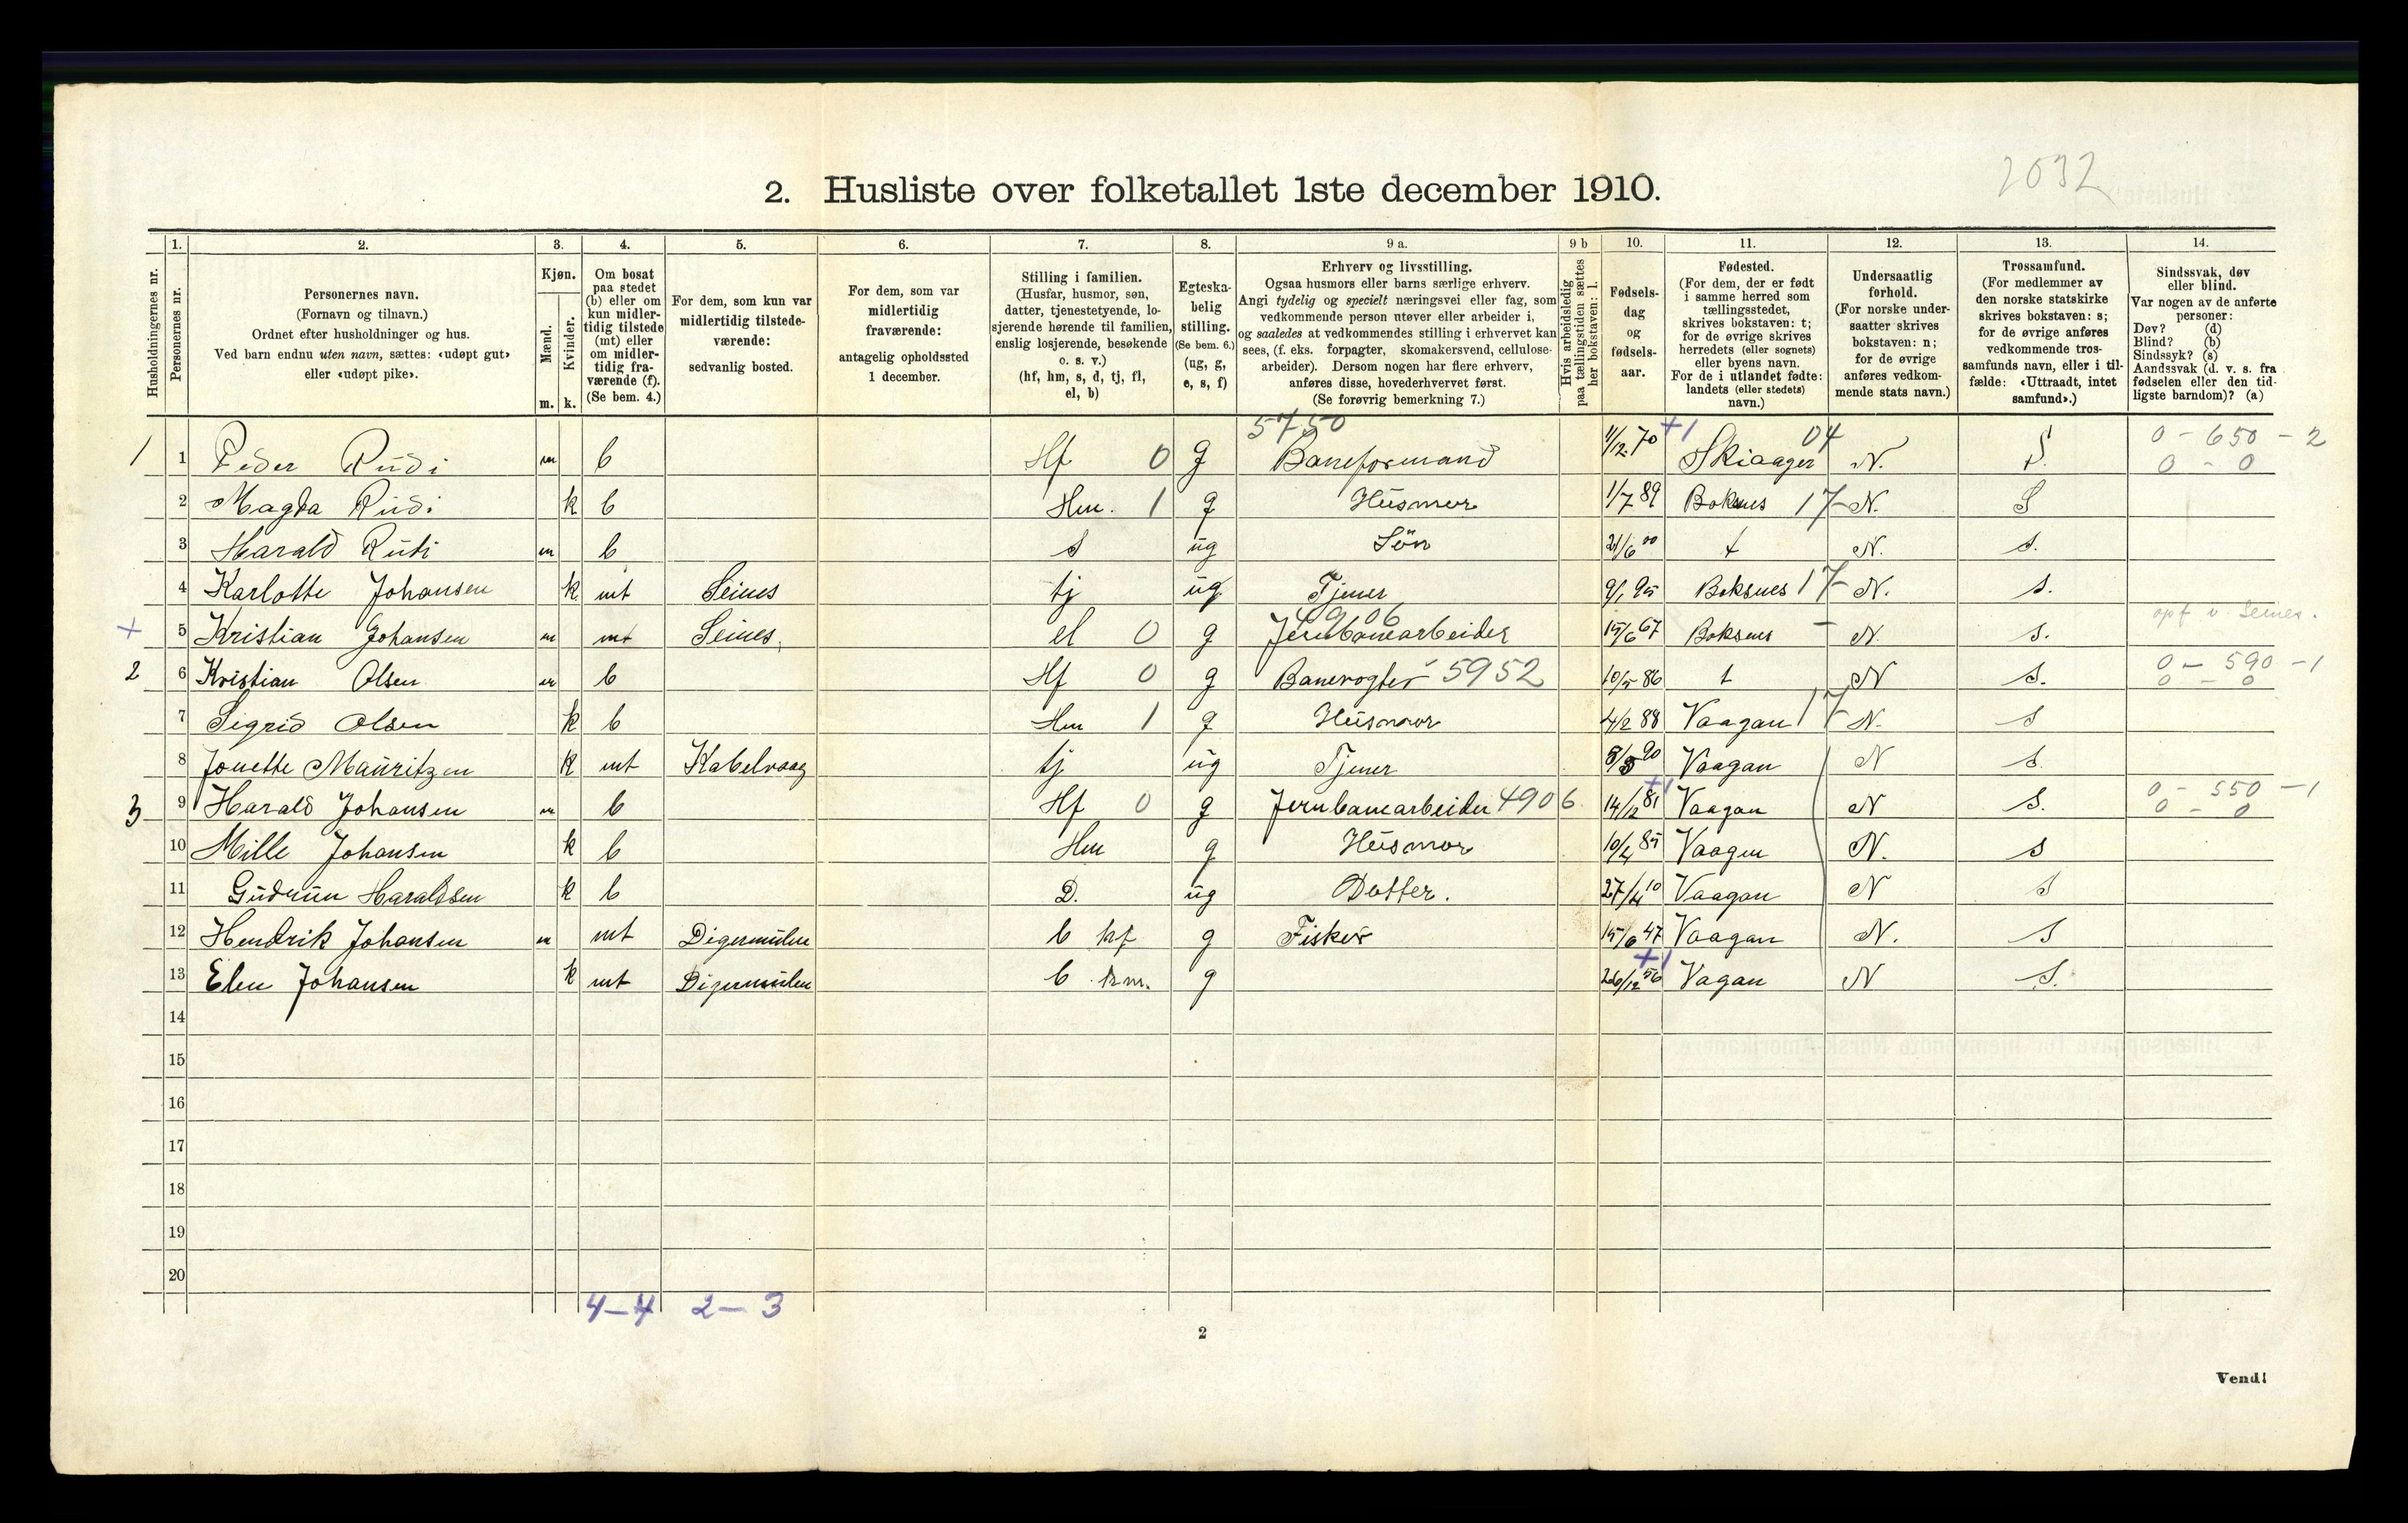 2032
2. Husliste over folketallet 1ste december 1910.
Husholdningernes nr.
1. Personernes nr.
2. Personernes navn.
(Fornavn og tilnavn.)
Ordnet efter husholdninger og hus.
Ved barn endnu uten navn, sættes: «udøpt gut»
eller «udøpt pike».
3. Kjøn.
Mænd. m.
Kvinder. k.
4. Om bosat
paa stedet
(b) eller om
kun midler-
tidig tilstede
(mt) eller
om midler-
tidig fra-
værende (f).
(Se bem. 4.)
5. For dem, som kun var
midlertidig tilstede-
værende:
sedvanlig bosted.
6. For dem, som var
midlertidig
fraværende:
antagelig opholdssted
1 december.
7. Stilling i familien.
(Husfar, husmor, søn,
datter, tjenestetyende, lo-
sjerende hørende til familien,
enslig losjerende, besøkende
o. s. v.)
(hf, hm, s, d, tj, fl,
el, b)
8. Egteska-
belig
stilling.
(Se bem. 6.)
(ug, g,
e, s, f)
9 a. Erhverv og livsstilling.
Ogsaa husmors eller barns særlige erhverv.
Angi tydelig og specielt næringsvei eller fag, som
vedkommende person utøver eller arbeider i,
og saaledes at vedkommendes stilling i erhvervet kan
sees, (f. eks. forpagter, skomakersvend, cellulose-
arbeider). Dersom nogen har flere erhverv,
anføres disse, hovederhvervet først.
(Se forøvrig bemerkning 7.)
9 b Hvis arbeidsledig
paa tællingstiden sættes
her bokstaven: l.
10. Fødsels-
dag
og
fødsels-
aar.
11. Fødested.
(For dem, der er født
i samme herred som
tællingsstedet,
skrives bokstaven: t;
for de øvrige skrives
herredets (eller sognets)
eller byens navn.
For de i utlandet fødte:
landets (eller stedets)
navn.)
12. Undersaatlig
forhold.
(For norske under-
saatter skrives
bokstaven: n;
for de øvrige
anføres vedkom-
mende stats navn.)
13. Trossamfund.
(For medlemmer av
den norske statskirke
skrives bokstaven: s;
for de øvrige anføres
vedkommende tros-
samfunds navn, eller i til-
fælde: «Uttraadt, intet
samfund».)
14. Sindssvak, døv
eller blind.
Var nogen av de anførte
personer:
Døv? (d)
Blind? (b)
Sindssyk? (s)
Aandssvak (d. v. s. fra
fødselen eller den tid-
ligste barndom)? (a)
1 1 Peder Rudi m b Hf 0 g 5750 Baneformand 1/12 70 +1 Skiaager 04 N. S. 0 - 650 - 2 0 - 0
2 Magda Rudi k b Hm. 1 g Husmor 1/7 89 Boksnes 17 N. S
3 Harald Ruti m b s ug Sön 21/6 00 t N. s.
4 Karlotte Johansen k. mt Seines tj ug Tjener 9/1 95 Boksnes 17 N. s.
+ 5 Kristian Johansen m mt Seines, el 0 g 4906 Jernbanearbeider 15/6 67 Boksnes - N. s. opf v. Seines.
2 6 Kristian Olsen m b Hf 0 g Banevogter 5952 10/5 86 t N S. 0 - 590 - 1 0 - 0
7 Sigrid Olsen k b Hm 1 g Husmor 4/2 88 Vaagan 17 N. S
8 Jonette Mauritzen k mt Kabelvaag tj ug Tjener 8/8 90 Vaagan N S.
3 9 Harald Johansen m b Hf 0 g Jernbanearbeider 4906. 14/12 81 +1 Vaagan N S. 0 - 550 - 1 0 - 0
10 Mille Johansen k b Hm g Husmor 10/4 85 Vaagen N. s
11 Gudrun Haraldsen k b D. ug Datter. 27/4 10 Vaagan N S
12 Hendrik Johansen m mt Digermulen b hf g Fisker 15/6 47 Vaagan N. S
13 Elen Johansen k mt Digermulen b hm. g 26/12 56 +1 Vagan N S.
14
15
16
17
18
19
20
4-4 2-3
2
Vend!